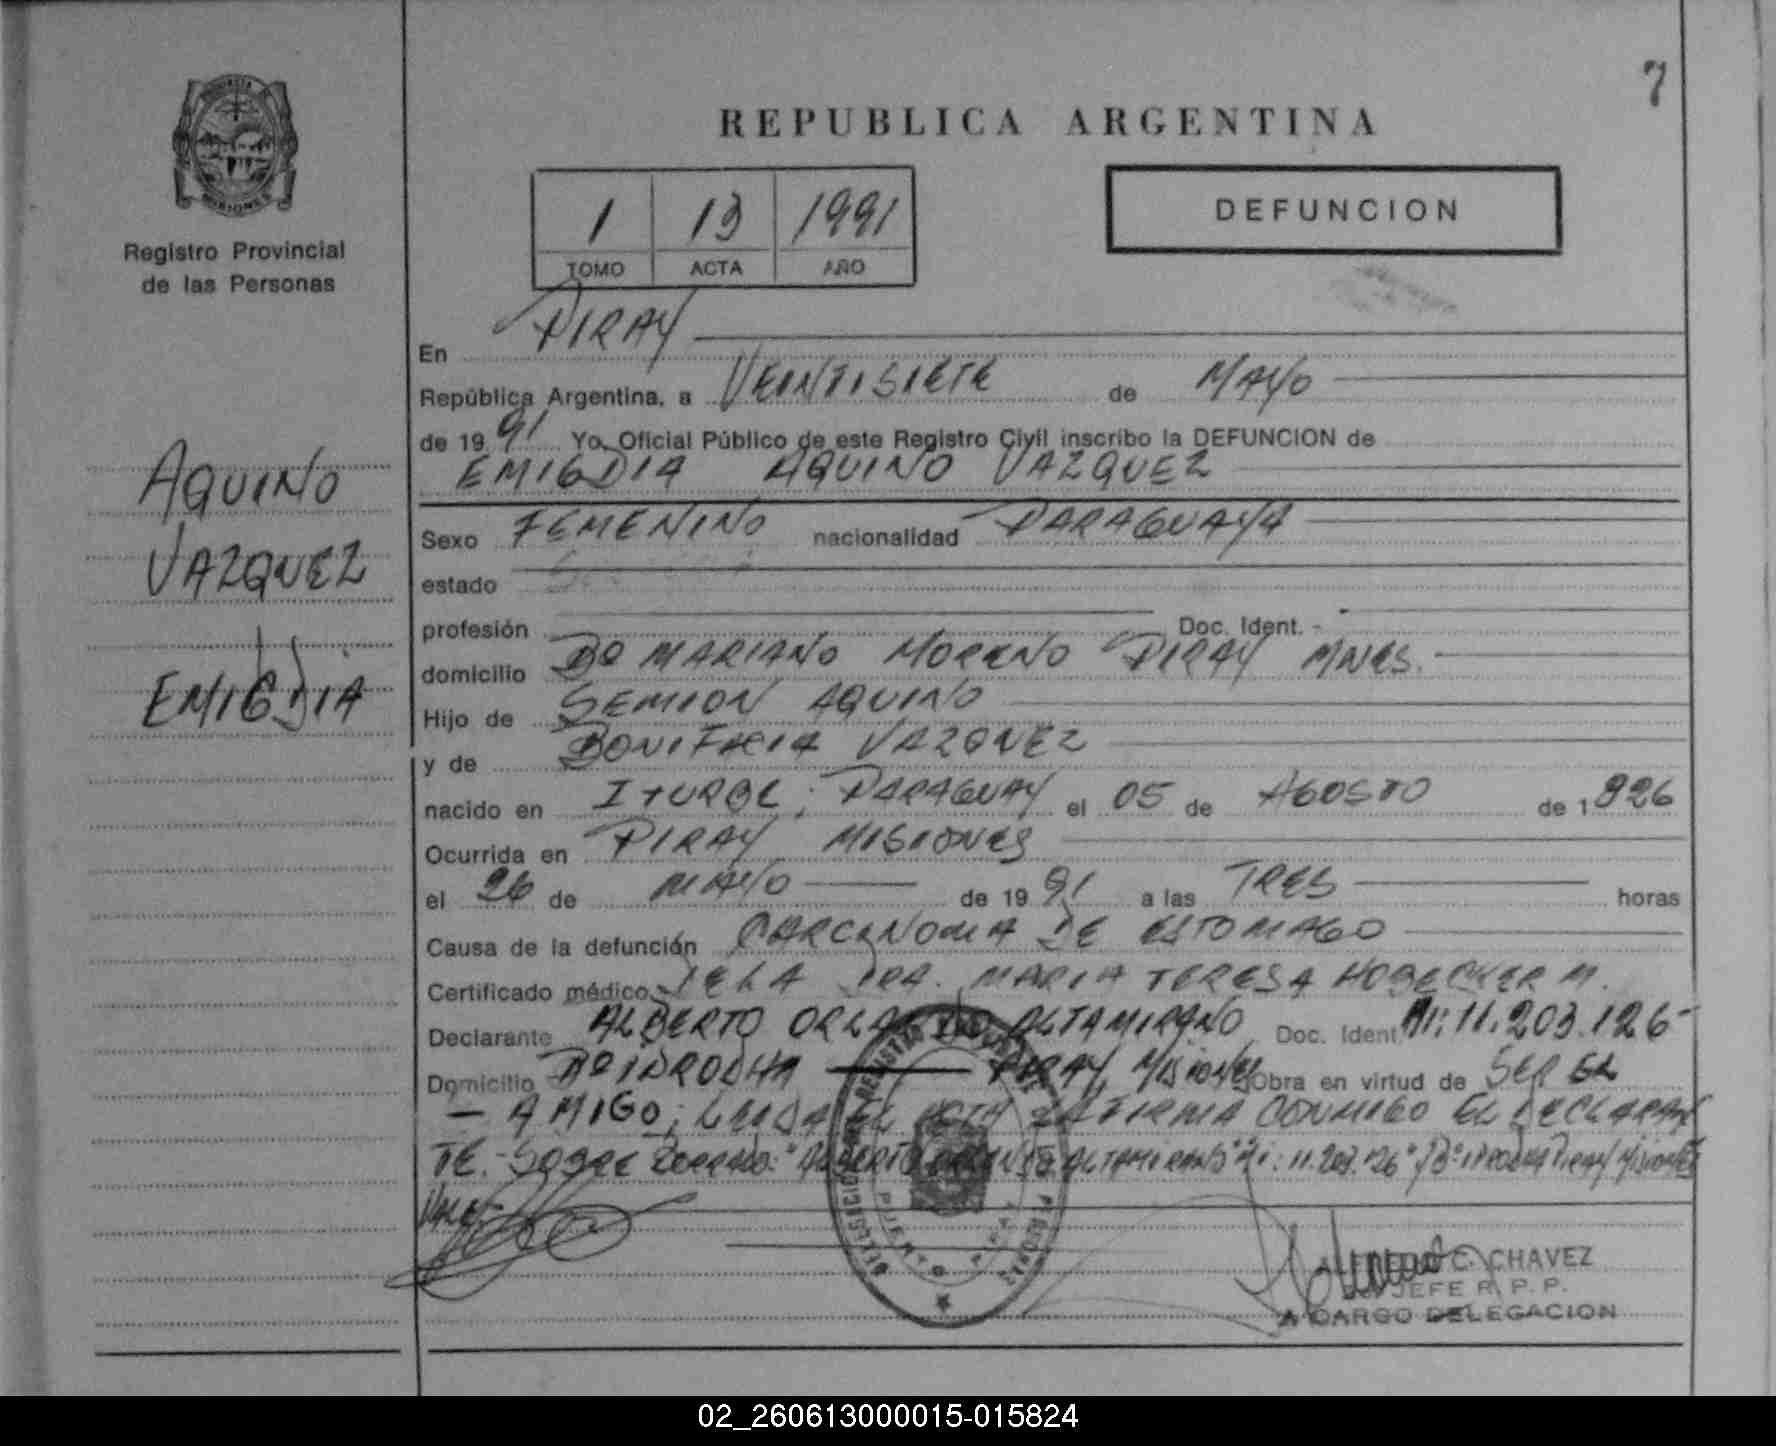 7
REPUBLICA ARGENTINA
PROVINCIA
MISIONES
Registro Provincial
de las Personas
1 13 1991
TOMO ACTA AÑO
DEFUNCION
En PIRAY
República Argentina, a VEINTISIETE de MAYO
de 19 91 Yo, Oficial Público de este Registro Civil inscribo la DEFUNCION de
EMIGDIA AQUINO VAZQUEZ
AQUINO
VAZQUEZ
EMIGDIA
Sexo FEMENINO nacionalidad PARAGUAYA
estado
profesión Doc. Ident. -
domicilio Bo MARIANO MORENO PIRAY MNES.
Hijo de SEMION AQUINO
y de BONIFACIA VAZQUEZ
nacido en ITURBE, PARAGUAY el 05 de AGOSTO de 1926
Ocurrida en PIRAY MISIONES
el 26 de MAYO de 19 91 a las TRES horas
Causa de la defunción CARCINOMA DE ESTOMAGO
Certificado médico DE LA DRA. MARIA TERESA HOBECKER M.
Declarante ALBERTO ORLANDO ALTAMIRANO Doc. Ident. MI: 11.203.126-
Domicilio Bo PIRAY, Misiones Obra en virtud de SER EL
- AMIGO; LEIDA EL ACTA LA FIRMA CONMIGO EL DECLARAN
TE.- Sobre Borrado: "ALBERTO ORLANDO ALTAMIRANO" MI: 11.203.126"
Vale.-
DELEGACION REGISTRO PERSONAS
C. CHAVEZ
JEFE R. P. P.
A CARGO DELEGACION
02_260613000015-015824